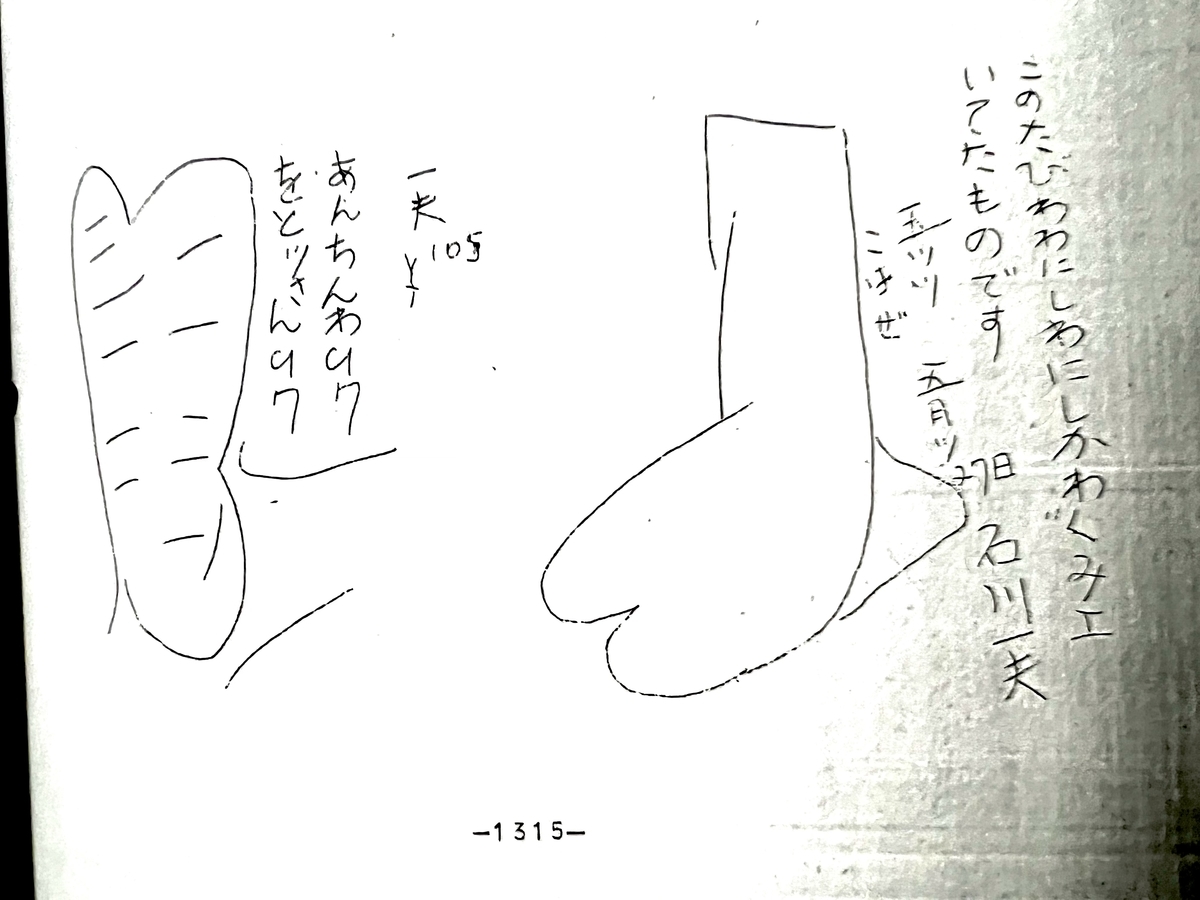 このたびわわにしわにしかわぐみエ
いてたものです
五ツツ
こはぜ
五月ツ27日
石川一夫
一夫
¥105
あんちんわ97
をとッさん97
—1315—